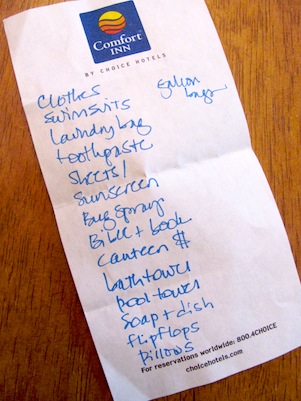 Comfort
INN
BY CHOICE HOTELS
Clothes
gallon
bags
Swimsuits
Laundry bag
toothpaste
Sheets/
Sunscreen
Bug Spray
Bible + book
canteen $
bath towel
pool towel
Soap + dish
flipflops
Pillows
For reservations worldwide: 800.4CHOICE
choicehotels.com